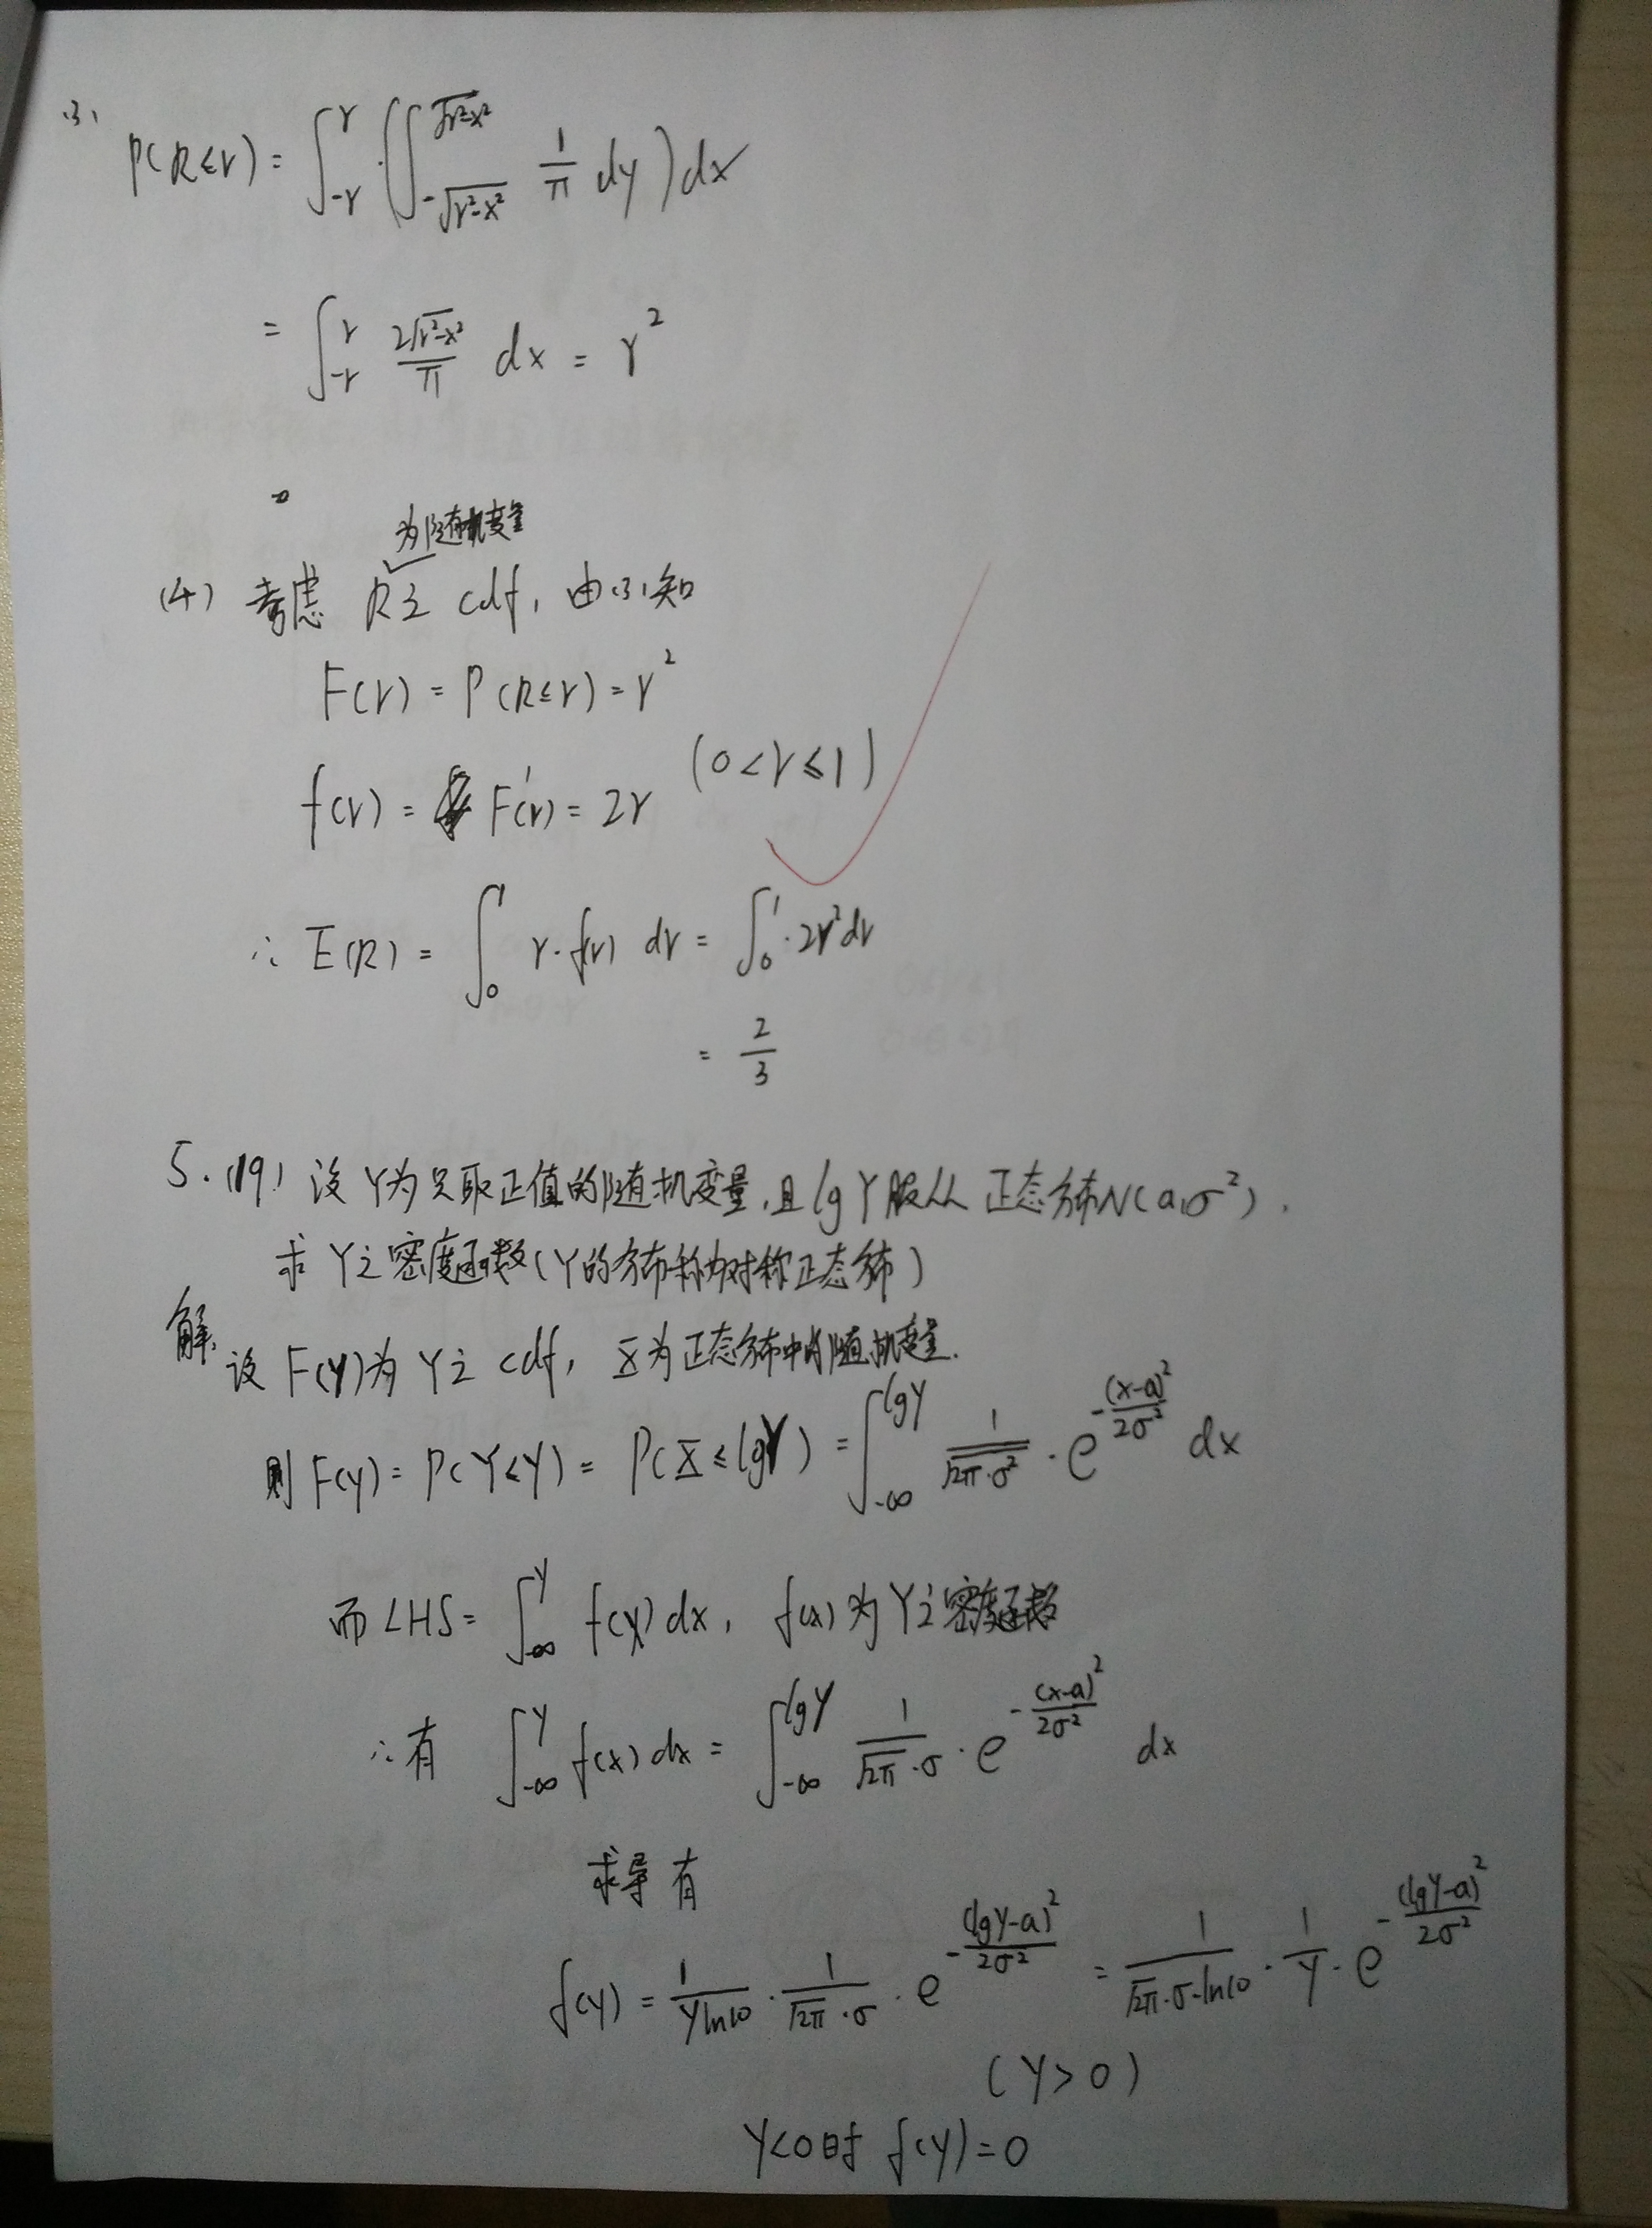 (3) P(R≤r) = ∫_{-r}^{r} (∫_{-√(r²-x²)}^{√(r²-x²)} 1/π dy) dx
= ∫_{-r}^{r} 2√(r²-x²)/π dx = r²
为随机变量
(4) 考虑 R之 cdf, 由(3)知
F(r) = P(R≤r) = r²
f(r) = F'(r) = 2r (0<r≤1)
∴ E(R) = ∫_0^1 r·f(r) dr = ∫_0^1 ·2r²dr
= 2/3
5.(19) 设 Y为只取正值的随机变量,且lgY服从 正态分布N(a,σ²).
求 Y之密度函数(Y的分布称为对称正态分布)
解.
设 F(y)为 Y之 cdf, X为正态分布中的随机变量.
则 F(y) = P(Y≤y) = P(X≤lgy) = ∫_{-∞}^{lgy} 1/√(2π·σ²) · e^{-(x-a)²/2σ²} dx
而 LHS = ∫_{-∞}^{y} f(x) dx, f(x) 为 Y之密度函数
∴有 ∫_{-∞}^{y} f(x) dx = ∫_{-∞}^{lgy} 1/(√2π·σ) · e^{-(x-a)²/2σ²} dx
求导有
f(y) = 1/(y ln10) · 1/(√2π·σ) · e^{-(lgy-a)²/2σ²} = 1/(√2π·σ·ln10) · 1/y · e^{-(lgy-a)²/2σ²}
(y>0)
y<0时 f(y)=0